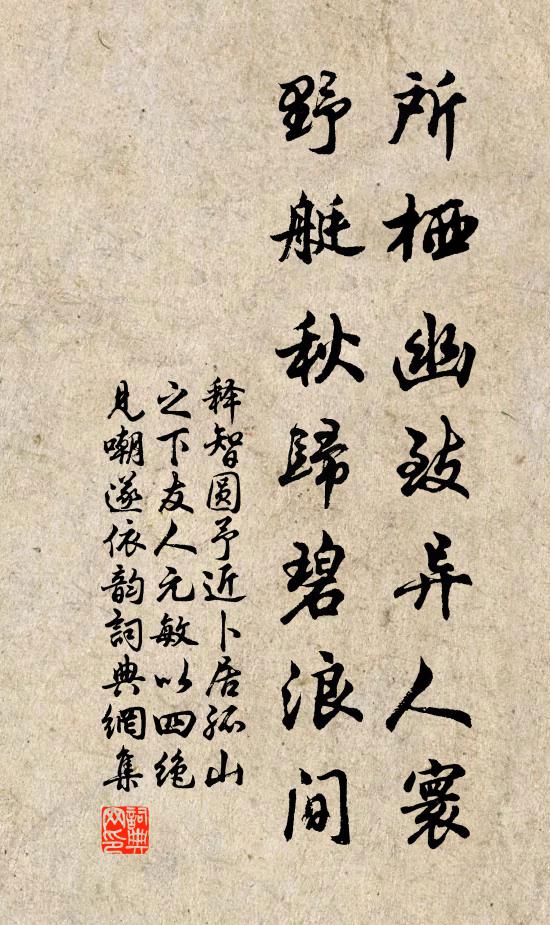 所栖幽致异人寰
野艇秋歸碧浪间
释智圆予近卜居孤山
之下友人元敏以四绝
见嘲遂依韵詞典網集
詞典
网印